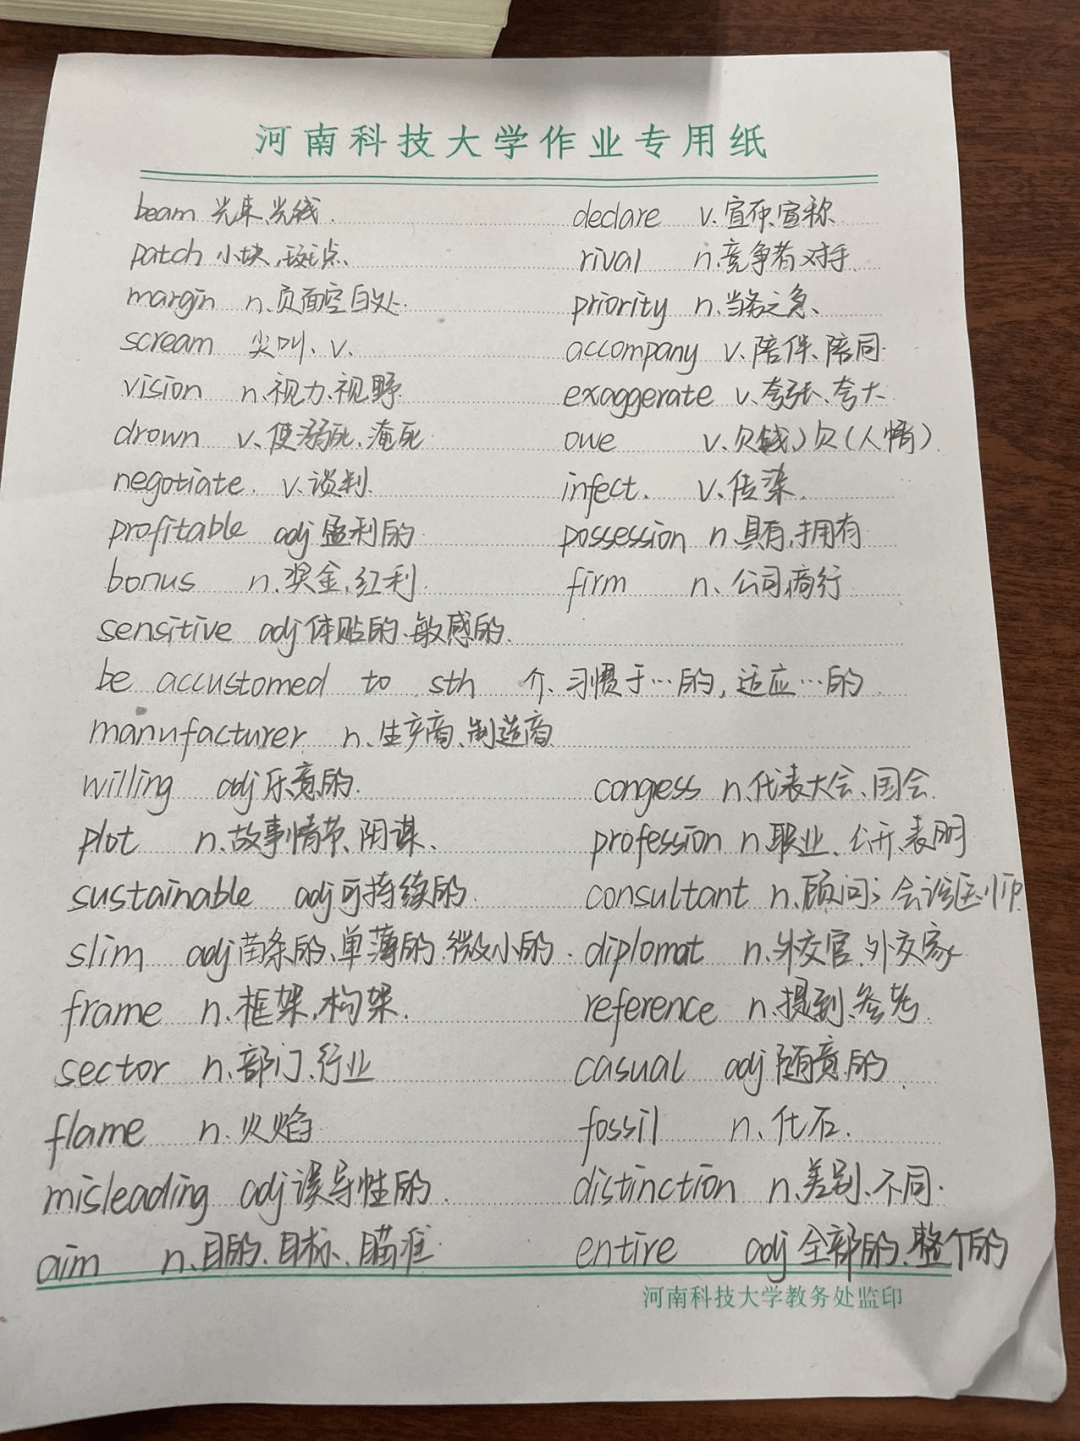 河南科技大学作业专用纸
beam 光束、光线. declare v.宣布、宣称
patch 小块、斑点、 rival n.竞争者、对手
margin n.页面空白处. priority n.当务之急、
scream 尖叫、v. accompany v.陪伴、陪同
vision n.视力、视野 exaggerate v.夸张、夸大
drown v.使溺死、淹死 owe v.欠(钱)欠(人情)
negotiate. v.谈判 infect. v.传染.
profitable adj 盈利的 possession n.具有、拥有
bonus n.奖金、红利 firm n.公司、商行
sensitive adj 体贴的、敏感的.
be accustomed to sth 介、习惯于…的, 适应…的
manufacturer n.生产商、制造商
willing adj 乐意的. congress n.代表大会、国会
plot n.故事情节、阴谋、 profession n.职业、公开、表明
sustainable adj 可持续的 consultant n.顾问;会诊医师
slim adj 苗条的、单薄的、微小的. diplomat n.外交官、外交家
frame n.框架、构架. reference n.提到、参考
sector n.部门、行业 casual adj 随意的
flame n.火焰 fossil n.化石.
misleading adj 误导性的. distinction n.差别、不同.
aim n.目的、目标、瞄准 entire adj 全部的、整个的
河南科技大学教务处监印